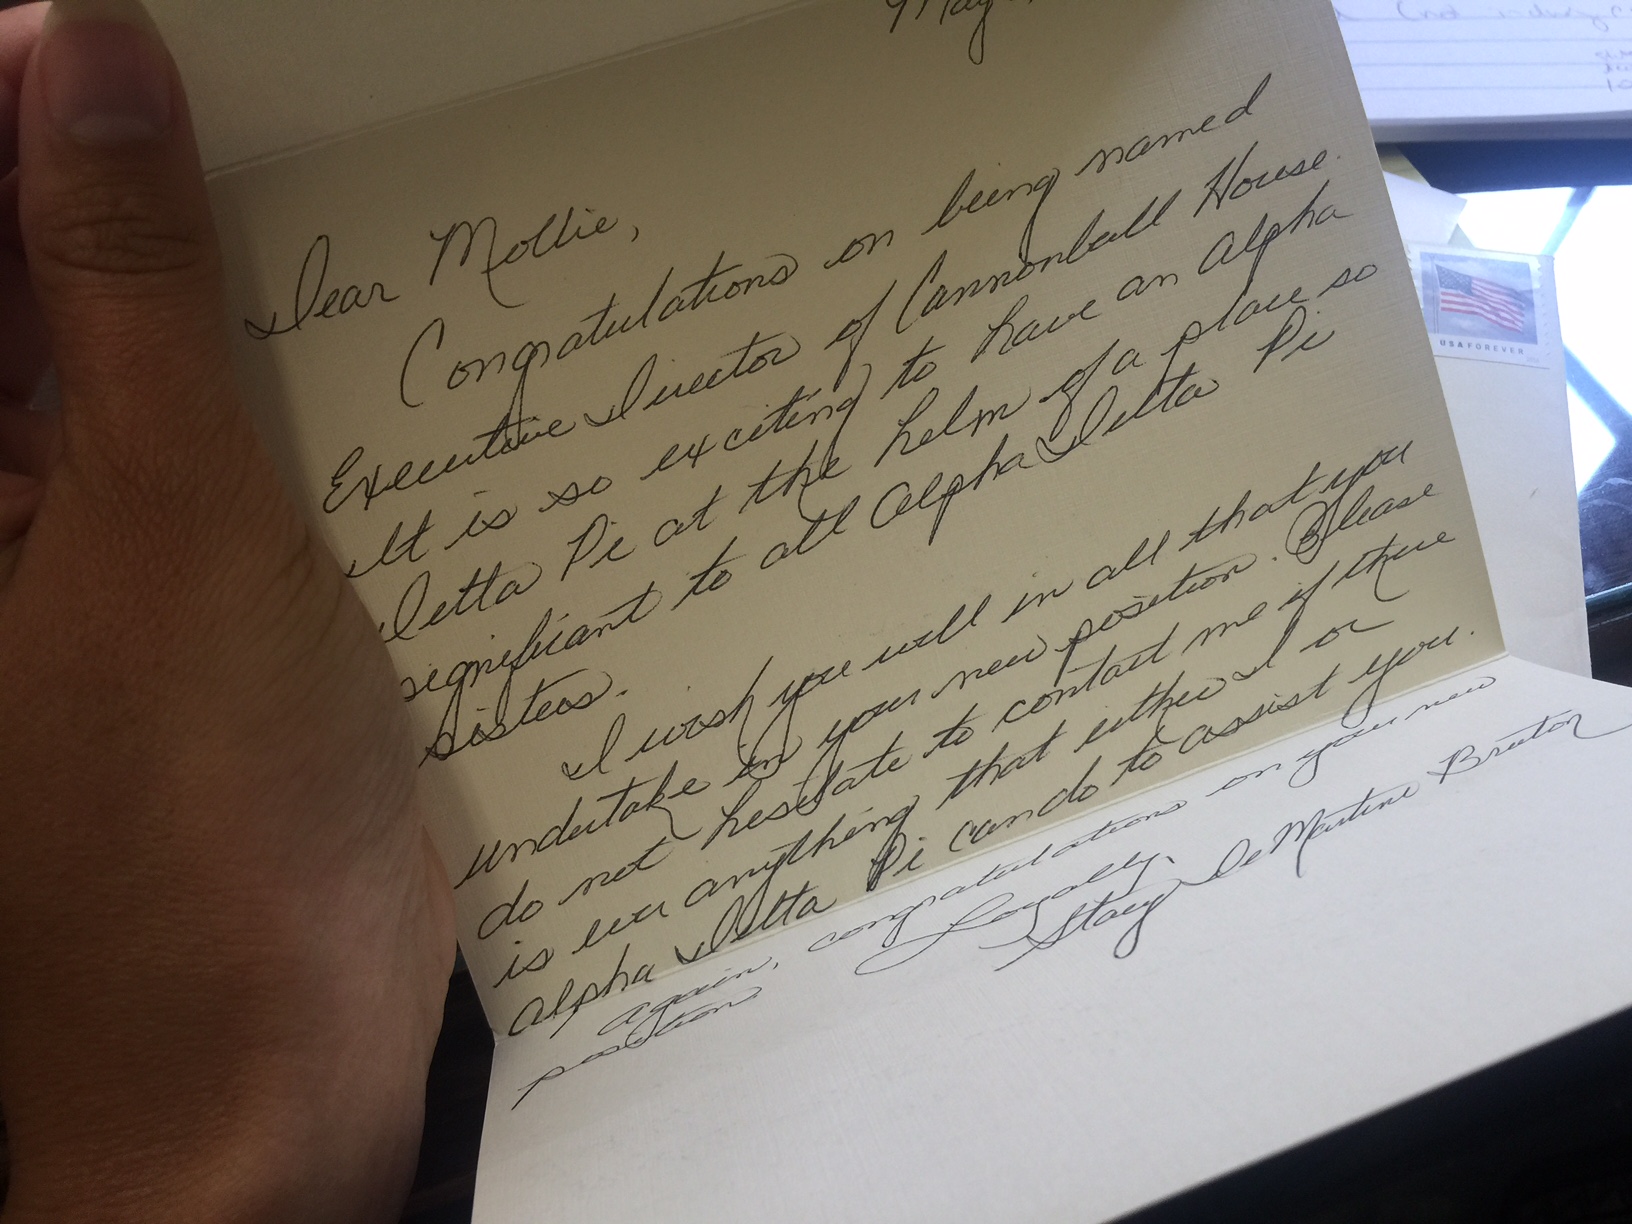 May
Dear Mollie,
Congratulations on being named
Executive Director of Cannonball House.
It is so exciting to have an Alpha
Delta Pi at the helm of a place so
significant to all Alpha Delta Pi
sisters.
I wish you well in all that you
undertake in your new position. Please
do not hesitate to contact me if there
is ever anything that either I or
Alpha Delta Pi can do to assist you.
Again, congratulations on your new
position
Loyally,
Stacy DeMartine Bruton
USA FOREVER